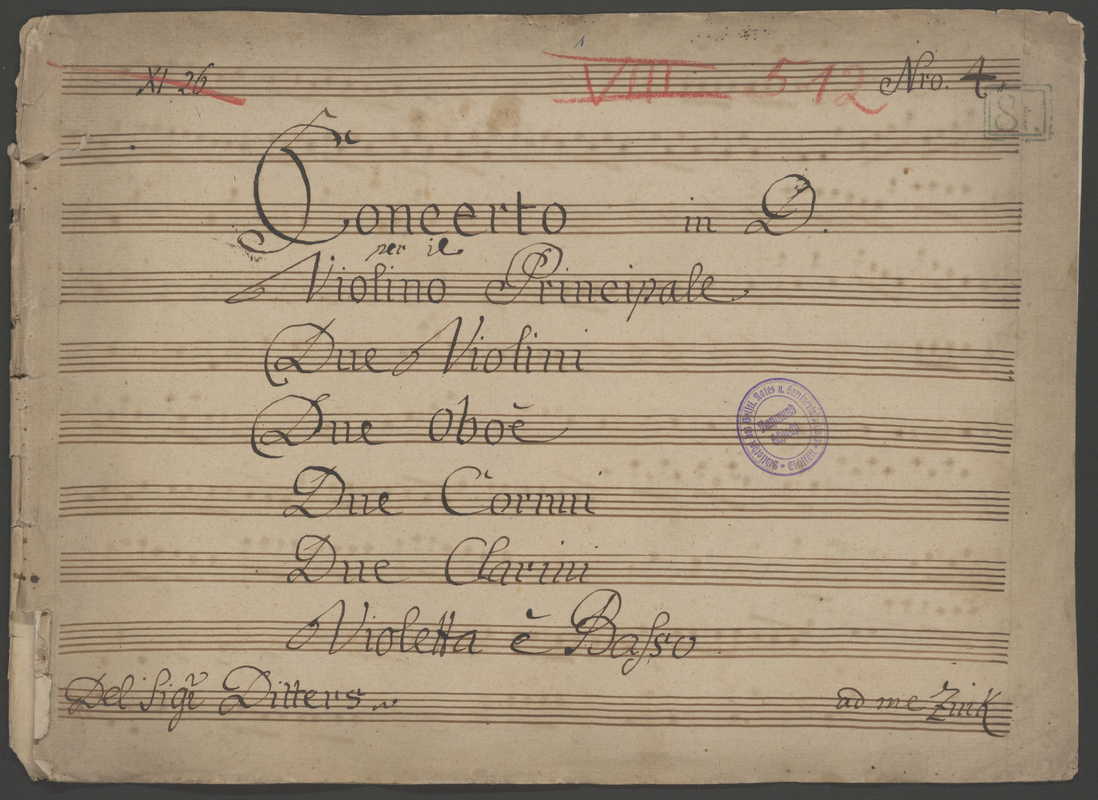 XI 26 VIII 512 Nro. 4.
St.
Concerto in D.
per il
Violino Principale
Due Violini
Due Oboè
Due Cornui
Due Clarini
Violetta è Baſso
Del Sigr Ditters ad me Zink